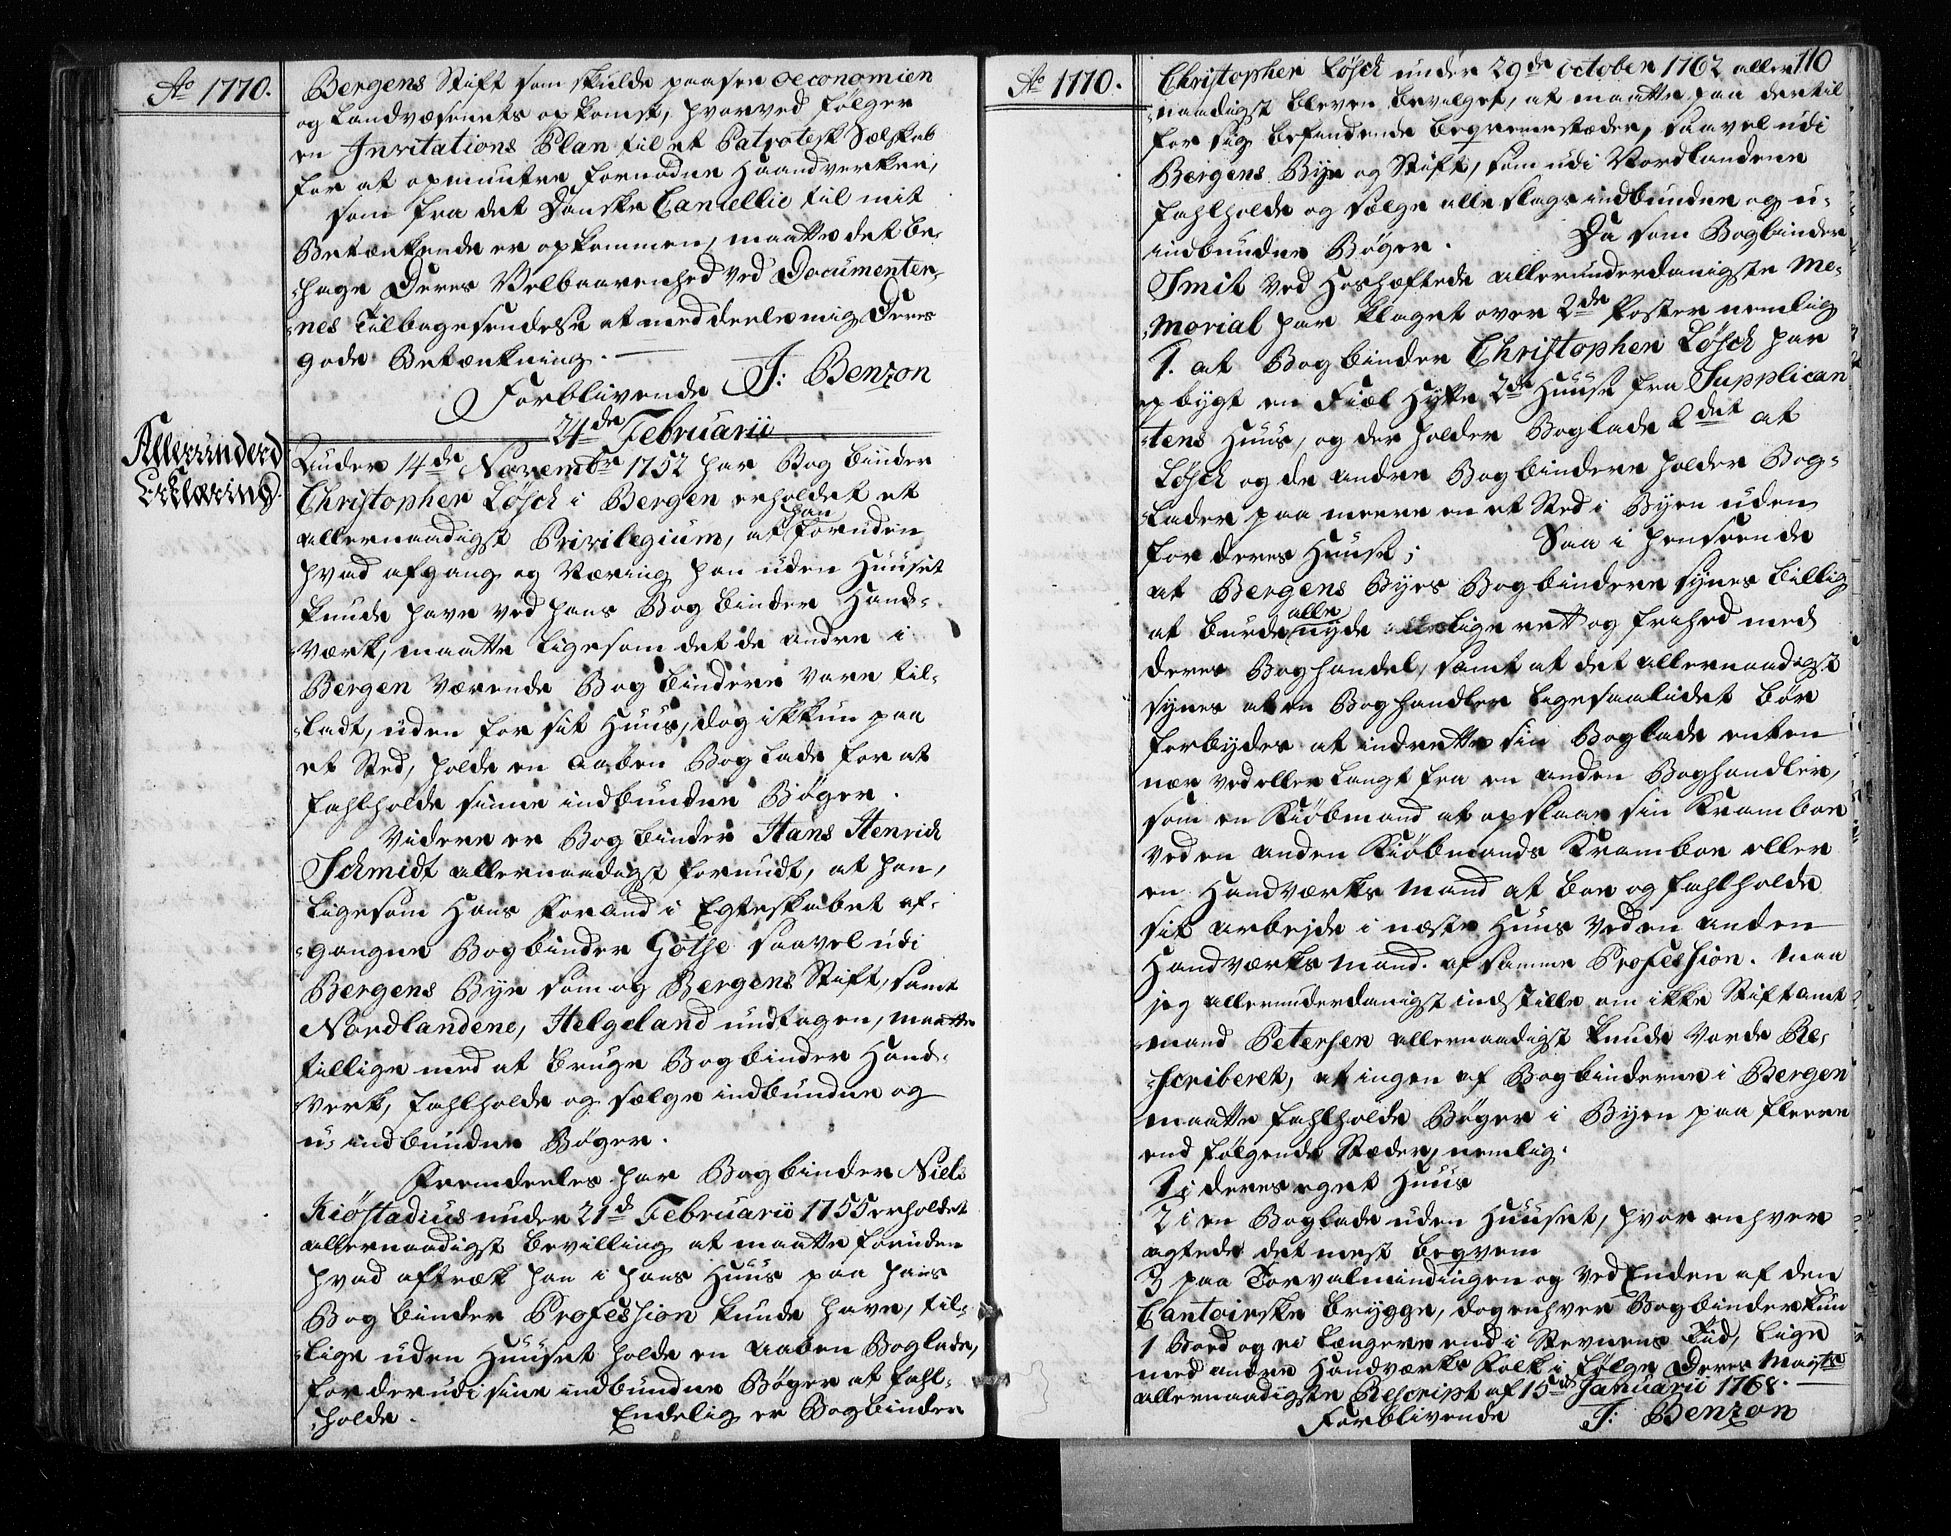 Ao 1770.
Bergens Stift som skulde paasee Oeconomien
og Landvæsenets opkomst, hvorved følger
en Invitations Plan til et Patriotisk Sælskab
for at opmuntre fornødne Haandverker,
som fra det Danske Cancellie til mit
Betænkende er opkommen, maatte det be-
-hage Deres Velbaarenhed ved Documenter-
-nes Tilbagesendelse at meddeele mig Deres
gode Betænkning.
Forblivende J: Benzon
24de Februarii
Allerunderd
Erklæring.
Under 14de Novembr 1752 har Bogbinder
Christopher Lösch i Bergen erholdet et
allernaadigst Privilegium, at han foruden
hvad afgang og Næring han uden Huuset
kunde have ved hans Bogbinder Hand-
-værk, maatte ligesom det de andre i
Bergen værende Bogbindere vare til-
-ladt, uden for sit Huus, dog ikkun paa
et Sted, holde en Aaben Boglade for at
fahlholde sinne indbundne Bøger.
Videre er Bogbinder Hans Henrich
Schmidt allernaadigst forundt, at han,
ligesom Hans Formand i Egteskabet af-
-gangne Bogbinder Gothe saavel udi
Bergens Bye som og Bergens Stift, samt
Nordlandene, Helgeland undtagen, maatte
tillige med at bruge Bogbinder Hand-
-verk, fahlholde og sælge indbundne og
u-indbundne Bøger.
Fremdeeles har Bogbinder Niels
Kiöstadius under 21d Februarii 1755 erholdet
allernaadigst bevilling at maatte foruden
hvad aftræk han i hans Huus paa hans
Bogbinder Profession kunde have, til-
-lige uden Huuset holde en Aaben Boglade,
for derudi sine indbundne Bøger at fahl-
-holde. Endelig er Bogbinder
Ao 1770.
110
Christopher Lösch under 29de October 1762 aller
-naadigst bleven bevilget, at maatte paa dertil
for sig befindende beqvemme stæder, saavel udi
Bergens Bye og Stift, som udi Nordlandene
fahlholde og sælge alle slags indbundne og u-
indbundne Bøger. Da som Bogbinder
Smit ved Hoshæftede allerunderdanigste Me-
-morial har klaget over 2de Poster nemlig
1. at Bogbinder Christopher Lösch har
opbygt en Fiæl Hytte 2de Huuse fra Supplican
-tens Huus, og der holder Boglade 2det at
Lösch og de andre Bogbindere holder Bog-
-lader paa meere en et Sted i Byen uden
for deres Huuse; Saa i henseende
at Bergens Byes Bogbindere synes billig
at burde alle nyde lige rett og frihed med
deres Boghandel, samt at det allernaadigst
synes at en Boghandler ligesaalidet bør
forbydes at indrette sin Boglade enten
nær ved eller langt fra en anden Boghandler,
som en Kiöbmand at opslaae sin Kramboe
ved en anden Kiöbmands Kramboe eller
en Handværks Mand at boe og fahlholde
sit arbejde i næste Huus ved en anden
Handværks Mand af samme Profession. Maa
jeg allerunderdanigst indstille om ikke Stiftamt
-mand Petersen allernaadigst kunde vorde Re-
-scriberet, at ingen af Bogbinderne i Bergen
maatte fahlholde Bøger i Byen paa fleere
end følgende Stæder, nemlig:
1 i deres eget Huus
2 i en Boglade uden Huuset, hvor enhver
agtede det mest beqvem
3 paa Torvalmindingen og ved Enden af den
Cantoirske brygge, dog enhver Bogbinder kun
1 Bord og ei længere end i Stevnens Tiid, lige
med andre Handværks Folk i følge Deres Mayts
allernaadigste Rescript af 15de Januarii 1768.
Forblivende J: Benzon